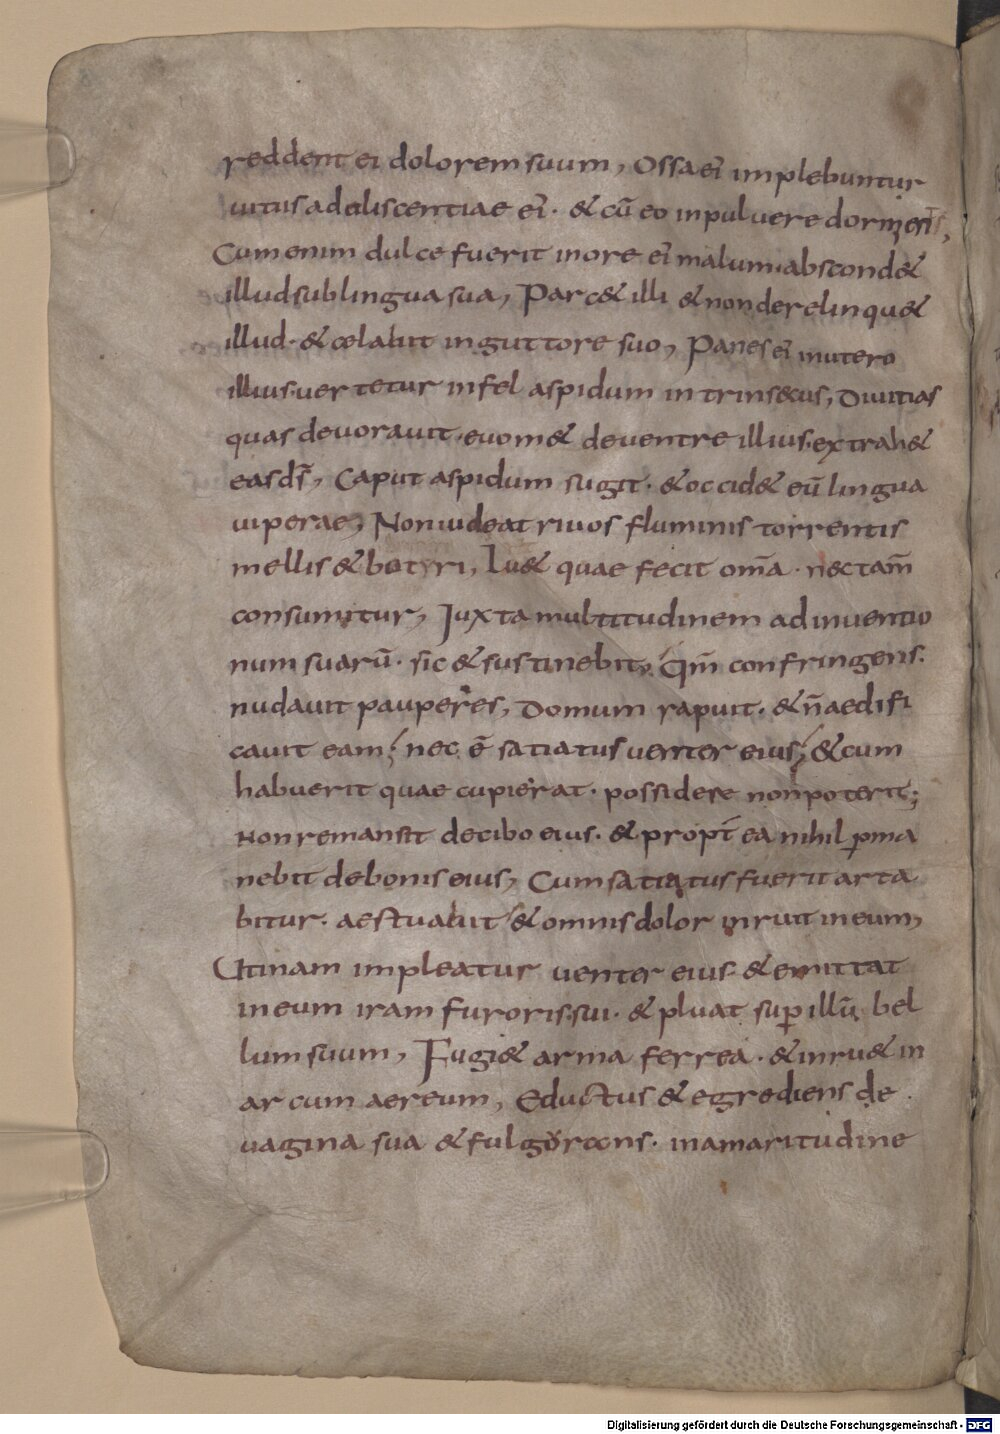 reddent ei dolorem suum, Ossa eī implebuntur
uitiis adoliscentiae eī. & cū eo in puluere dorment,
Cum enim dulce fuerit in ore eī malum. abscond&
illud sub lingua sua, Parc& illi & non derelinqu&
illud. & celabit in gutture suo, Panes eī in utero
illius. uertetur in fel aspidum intrinsecus, Diuitias
quas deuorauit. euom& de uentre illius. extrah&
eas d̄s, Caput aspidum sugit. & occid& eū lingua
uiperae, Non uideat riuos fluminis torrentis
mellis & botyri, Lu& quae fecit om̄a. nec tam̄
consumitur, Juxta multitudinem adinuentio
num suarū. sic & sustinebit, Qm̄ confringens.
nudauit pauperes, Domum rapuit. & n̄ aedifi
cauit eam; nec ē satiatus uenter eius; & cum
habuerit quae cupierat. possidere non poterit;
Non remansit de cibo eius. & propt̄ ea nihil perma
nebit de bonis eius, Cum satiatus fuerit arta
bitur. aestuabit & omnis dolor inruit in eum,
Utinam impleatur uenter eius. & emittat
in eum iram furoris sui. & pluat sup illū bel
lum suum, Fugi& arma ferrea. & inru& in
arcum aereum, Eductus & egrediens de
uagina sua & fulgorans. in amaritudine
Digitalisierung gefördert durch die Deutsche Forschungsgemeinschaft - DFG